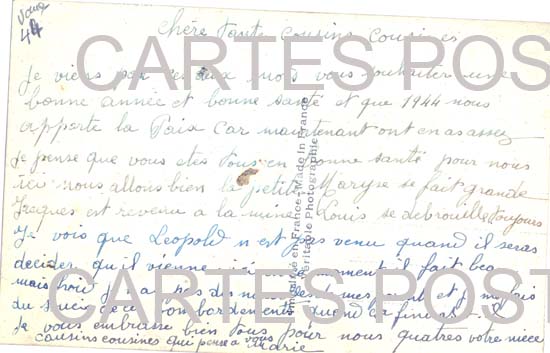 Janv
44
Chère Tante cousins cousines
Je viens par ces deux mots vous souhaiter une
bonne année et bonne santé et que 1944 nous
apporte la Paix car maintenant ont en as assez
Je pense que vous etes tous en bonne santé pour nous
ici nous allons bien la petite Maryse se fait grande
Jacques est revenu a la mine Louis se debrouille toujours
Je vois que Leopold n est pas venu quand il seras
decider qu il vienne ici en moment il fait beau
mais froid je n a pas des nouvelles et je
du bombardements quand ca finiras
Je vous embrasse bien tous pour nous quatres votre niece
cousins cousines qui pense a vous
Marie
Imprimé en France - Made in France
Véritable Photographie
CARTES POST
CARTES POST